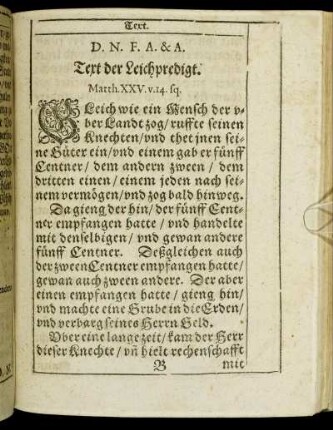 Text.
D. N. F. A. & A.
Text der Leichpredigt.
Matth. XXV. v. 14. sq.
GLeich wie ein Mensch der v-
ber Landt zog/ ruffte seinen
Knechten/ vnd thet jnen sei-
ne Güter ein/ vnd einem gab er fünff
Centner/ dem andern zween/ dem
dritten einen/ einem jeden nach sei-
nem vermögen/ vnd zog bald hinweg.
Da gieng der hin/ der fünff Cent-
ner empfangen hatte/ vnd handelte
mit denselbigen/ vnd gewan andere
fünff Centner. Deßgleichen auch
der zween Centner empfangen hatte/
gewan auch zween andere. Der aber
einen empfangen hatte/ gieng hin/
vnd machte eine Grube in die Erden/
vnd verbarg seines Herrn Geld.
Vber eine lange zeit/ kam der Herr
dieser Knechte/ vñ hielt rechenschafft
B mit